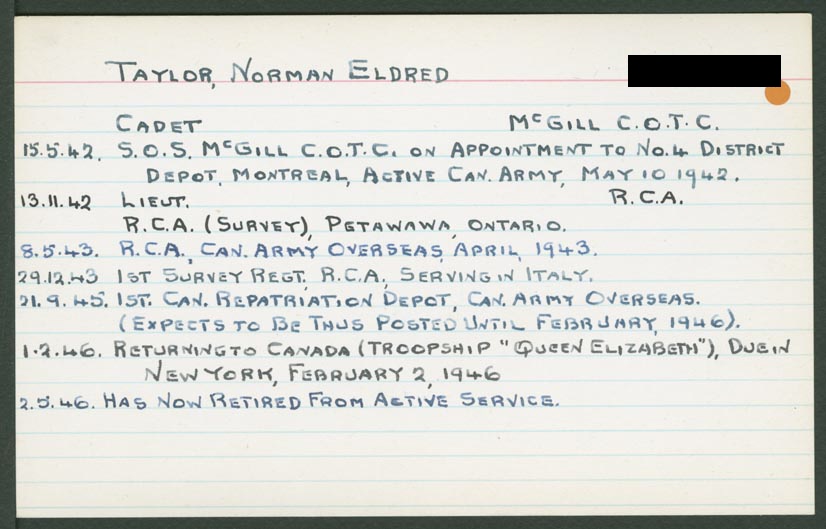 TAYLOR, NORMAN ELDRED
CADET McGILL C.O.T.C.
15.5.42. S.O.S. McGILL C.O.T.C. ON APPOINTMENT TO No.4 DISTRICT
DEPOT, MONTREAL, ACTIVE CAN. ARMY, MAY 10 1942.
13.11.42 LIEUT. R.C.A.
R.C.A. (SURVEY), PETAWAWA, ONTARIO.
8.5.43. R.C.A., CAN. ARMY OVERSEAS, APRIL, 1943.
29.12.43 1ST SURVEY REGT. R.C.A., SERVING IN ITALY.
21.9.45. 1ST. CAN. REPATRIATION DEPOT, CAN. ARMY OVERSEAS.
(EXPECTS TO BE THUS POSTED UNTIL FEBRUARY, 1946).
1.2.46. RETURNING TO CANADA (TROOPSHIP "QUEEN ELIZABETH"), DUE IN
NEW YORK, FEBRUARY 2, 1946
2.5.46. HAS NOW RETIRED FROM ACTIVE SERVICE.